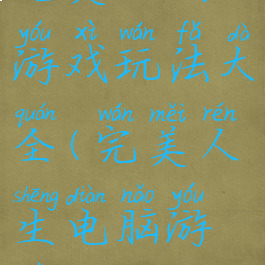 yóu xì wán fǎ dà
游戏玩法大
quán wán měi rén
全(完美人
shēng diàn nǎo yóu
生电脑游